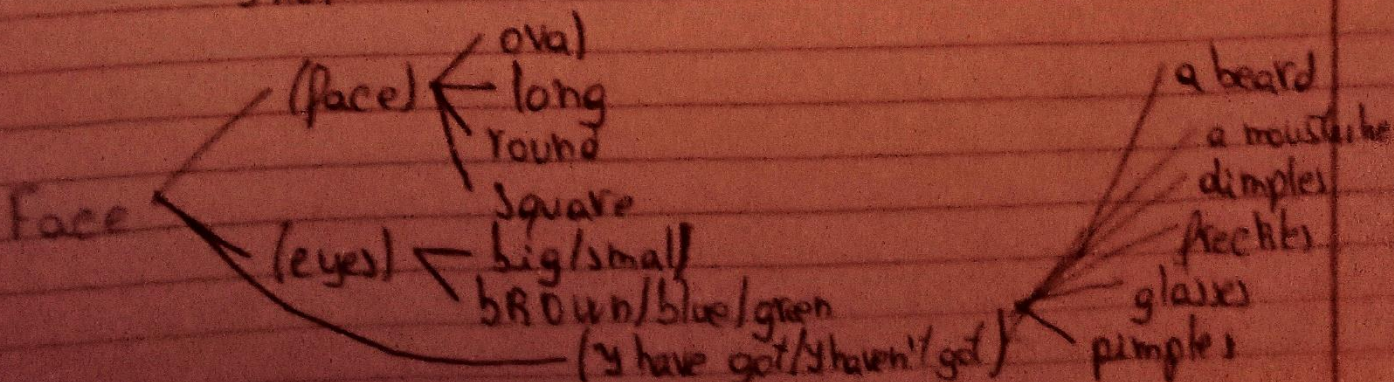 oval
(face) long
round
Face square
(eyes) big/small
bROwn/blue/green
(y have got/y haven't got)
a beard
a moustache
dimples
freckles
glasses
pimples